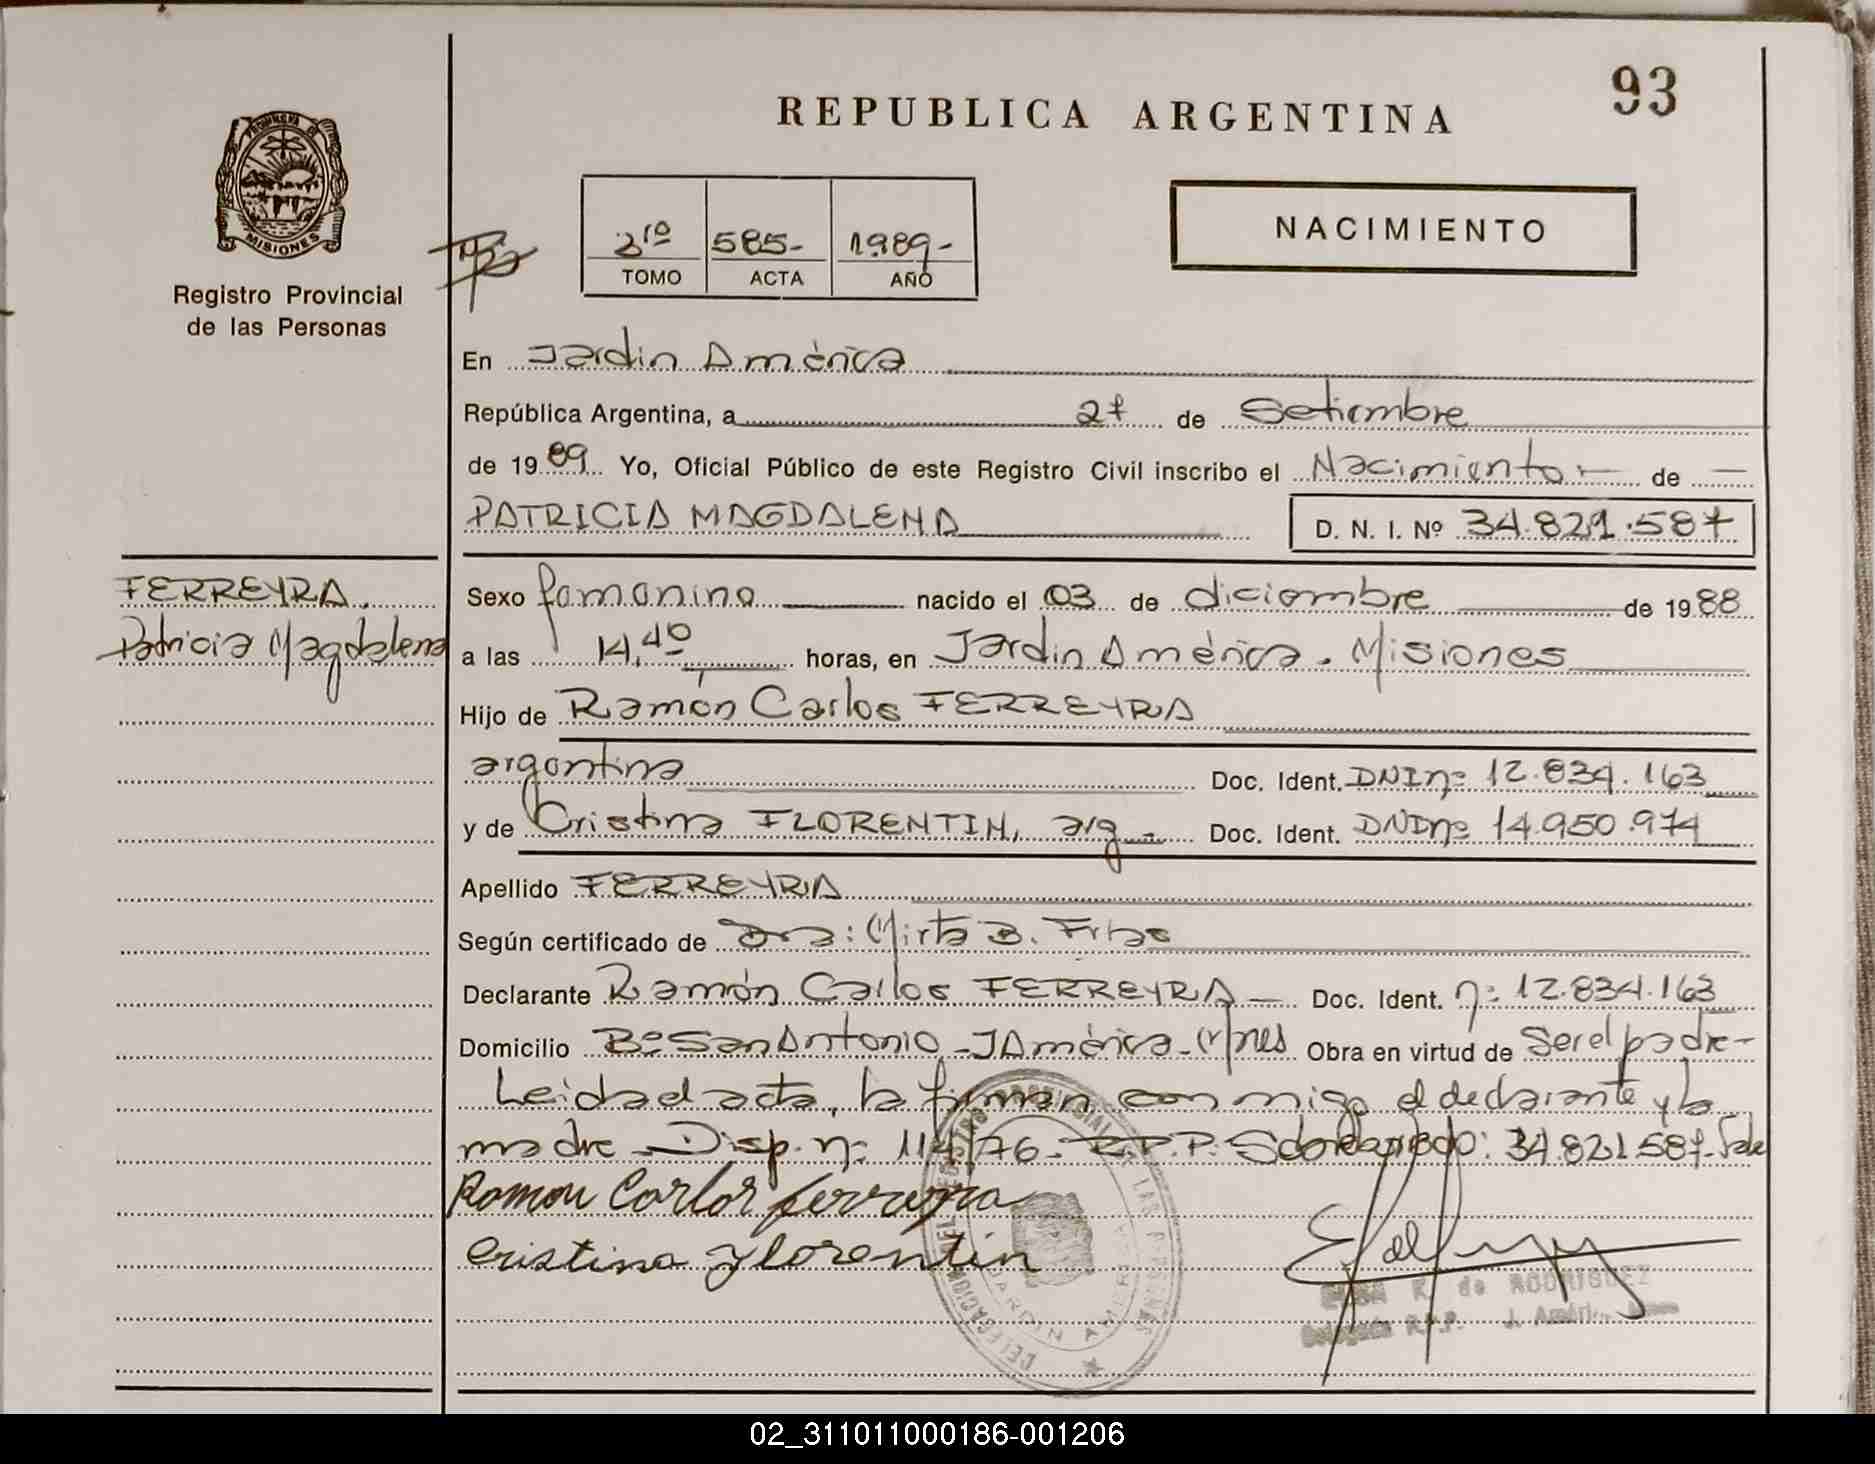 93
REPUBLICA ARGENTINA
PROVINCIA DE
MISIONES
Registro Provincial
de las Personas
3ro 585- 1989-
TOMO ACTA AÑO
NACIMIENTO
En Jardin América
República Argentina, a 27 de Setiembre
de 1989 Yo, Oficial Público de este Registro Civil inscribo el Nacimiento de
PATRICIA MAGDALENA D. N. I. Nº 34.821.587
FERREYRA.
Patricia Magdalena
Sexo femenino nacido el 03 de diciembre de 1988
a las 14,40 horas, en Jardin América. Misiones
Hijo de Ramón Carlos FERREYRA
argentina Doc. Ident. DNI nº 12.834.163
y de Cristina FLORENTIN, arg. Doc. Ident. DNI nº 14.950.974
Apellido FERREYRA
Según certificado de Dra: Mirta B. Frias
Declarante Ramón Carlos FERREYRA Doc. Ident. nº 12.834.163
Domicilio Bº San Antonio - J América - Mnes Obra en virtud de Ser el padre-
Leida el acta, la firman con migo el declarante y la
madre Disp. nº 114/76- R.P.P. 34.821.587-Vale
Ramon Carlos ferreyra
Cristina Florentin
DELEGACION JARDIN AMERICA
R. de RODRIGUEZ
Delegada R.P.P. J. América
02_311011000186-001206